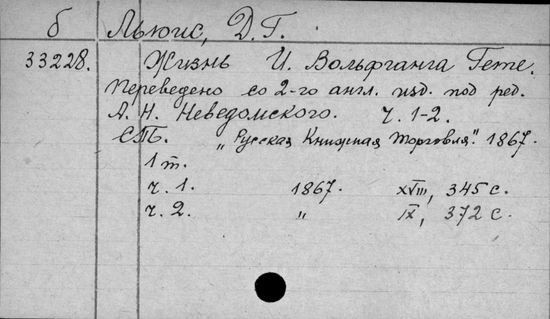 б Льюис, Д. Г.
33228. Жизнь И. Вольфганга Гете.
Переведено со 2-го англ. изд. под ред.
А. Н. Неведомского. Ч. 1-2.
СПБ. „Русская Книжная Торговля". 1867.
1 т.
ч. 1. 1867. XVIII, 345 с.
ч. 2. „ IX, 372 с.